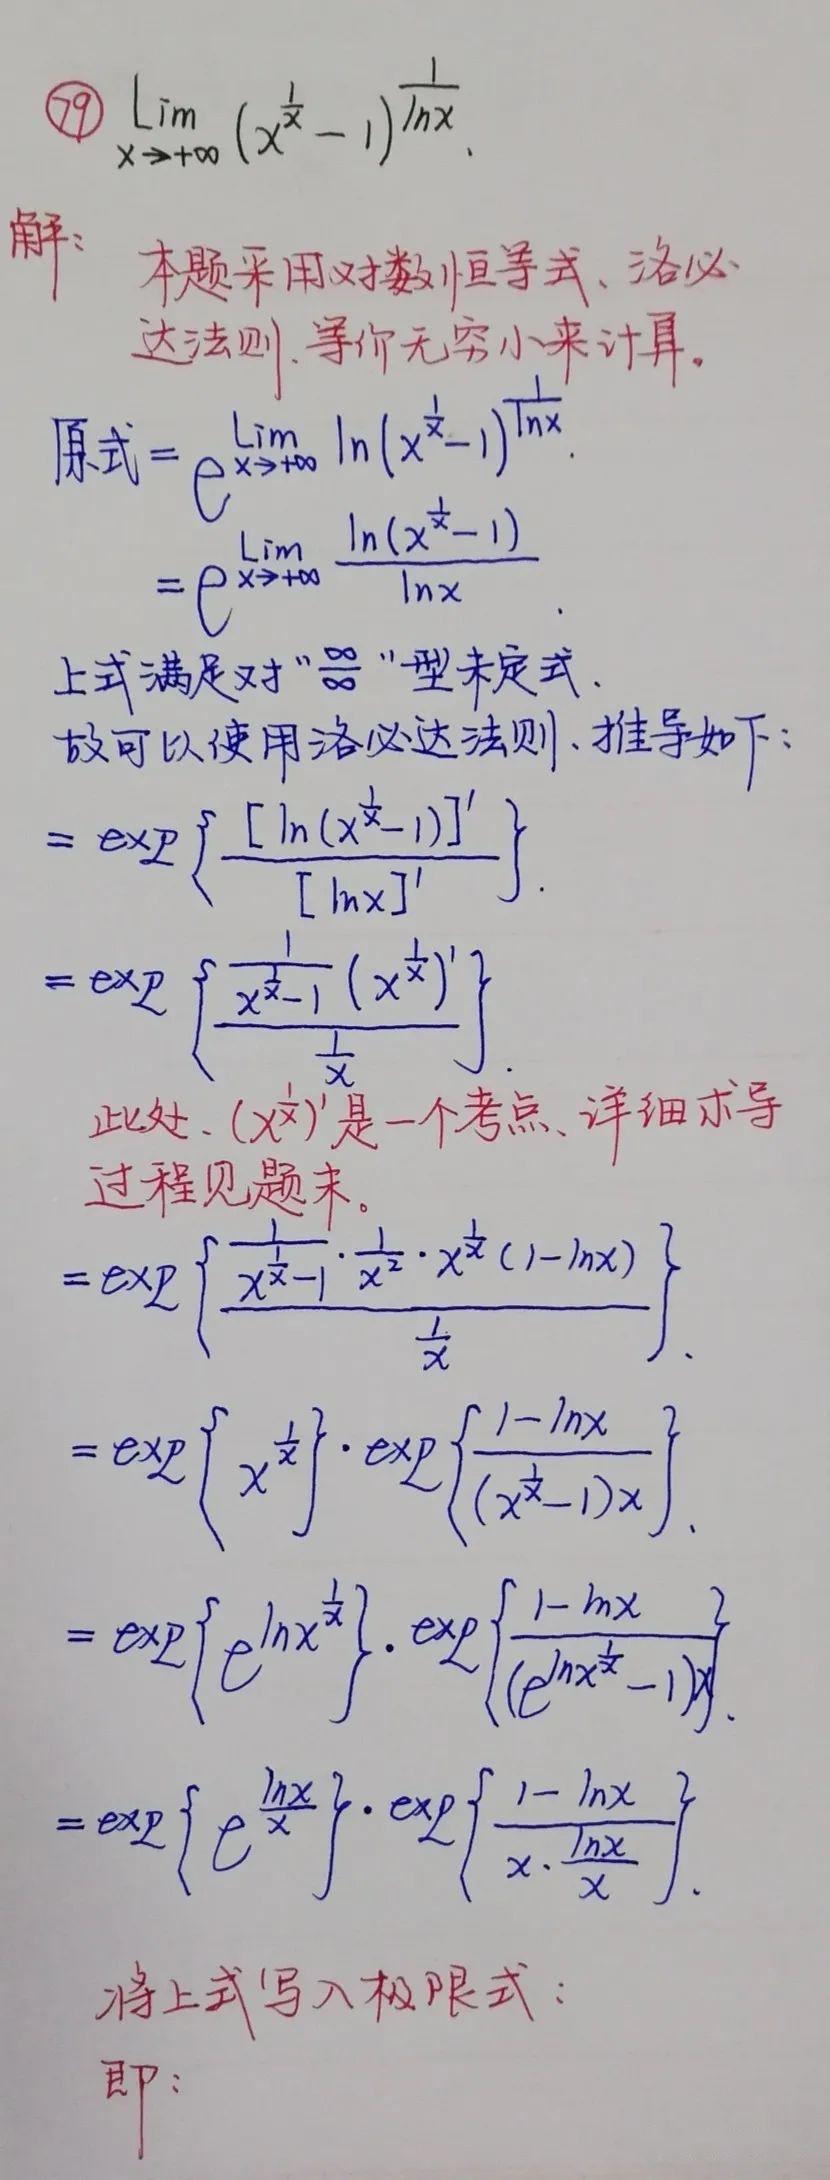 79 Lim x→+∞ (x^(1/x) - 1)^(1/lnx).
解: 本题采用对数恒等式、洛必
达法则、等价无穷小来计算。
原式 = e^(Lim x→+∞ ln(x^(1/x)-1)^(1/lnx)).
= e^(Lim x→+∞ ln(x^(1/x)-1)/lnx).
上式满足对"∞/∞"型未定式.
故可以使用洛必达法则、推导如下:
= exp{[ln(x^(1/x)-1)]'/[lnx]'}.
= exp{(1/(x^(1/x)-1) (x^(1/x))')/(1/x)}.
此处、(x^(1/x))'是一个考点、详细求导
过程见题末。
= exp{(1/(x^(1/x)-1)·1/x²·x^(1/x)(1-lnx))/(1/x)}.
= exp{x^(1/x)}·exp{(1-lnx)/((x^(1/x)-1)x)}.
= exp{e^(lnx^(1/x))}·exp{(1-lnx)/((e^(lnx^(1/x))-1)x)}.
= exp{e^(lnx/x)}·exp{(1-lnx)/(x·lnx/x)}.
将上式写入极限式:
即: